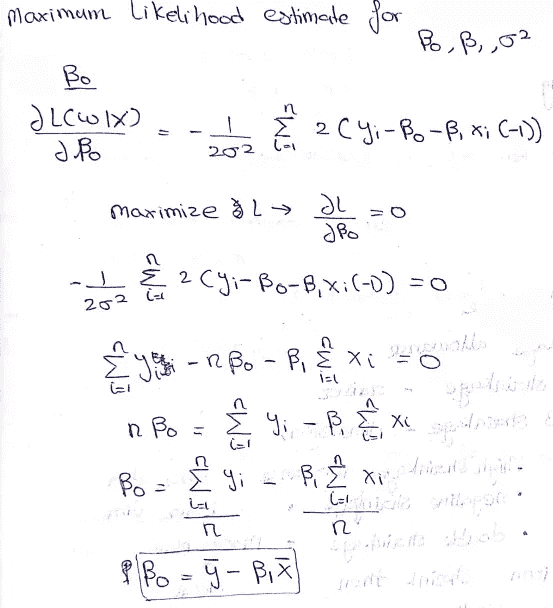 Maximum Likelihood estimate for β₀, β₁, σ²
β₀
∂L(ω|X)/∂β₀ = - 1/2σ² Σᵢ₌₁ⁿ 2(yᵢ-β₀-β₁xᵢ(-1))
maximize L → ∂L/∂β₀ = 0
- 1/2σ² Σᵢ₌₁ⁿ 2(yᵢ-β₀-β₁xᵢ(-1)) = 0
Σᵢ₌₁ⁿ yᵢ - nβ₀ - β₁ Σᵢ₌₁ⁿ xᵢ = 0
nβ₀ = Σᵢ₌₁ⁿ yᵢ - β₁ Σᵢ₌₁ⁿ xᵢ
β₀ = Σᵢ₌₁ⁿ yᵢ/n - β₁ Σᵢ₌₁ⁿ xᵢ/n
β₀ = ȳ - β₁x̄